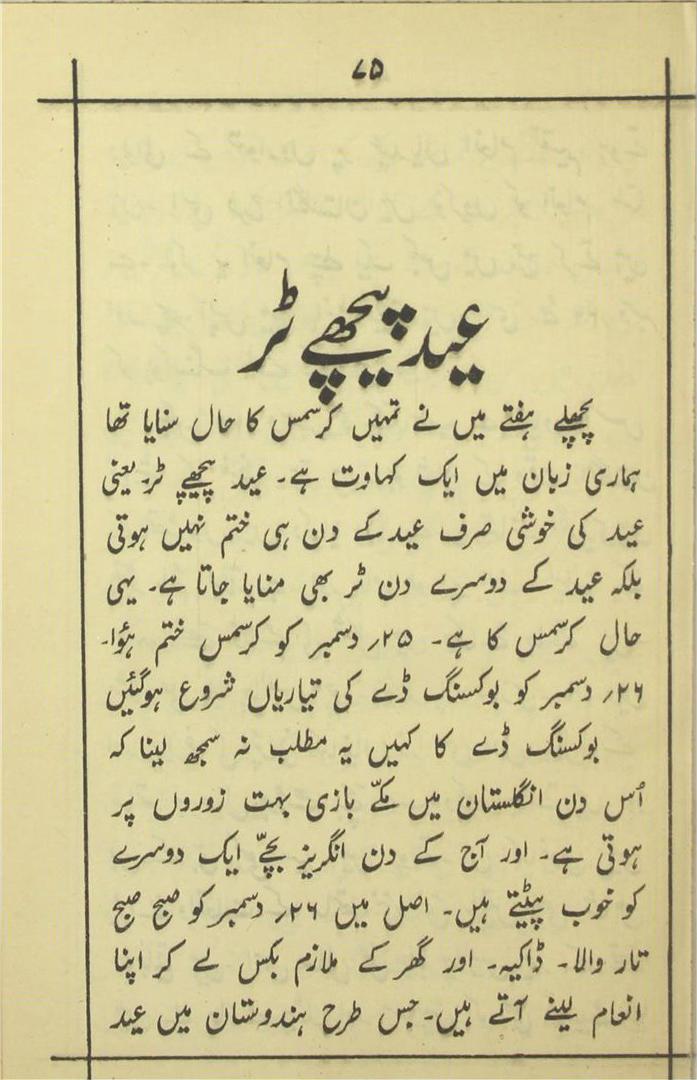 ۷۵
عید پیچھے ٹر
پچھلے ہفتے میں نے تمہیں کرسمس کا حال سنایا تھا
ہماری زبان میں ایک کہاوت ہے۔ عید پیچھے ٹر۔ یعنی
عید کی خوشی صرف عید کے دن ہی ختم نہیں ہوتی
بلکہ عید کے دوسرے دن ٹر بھی منایا جاتا ہے۔ یہی
حال کرسمس کا ہے۔ ۲۵؍ دسمبر کو کرسمس ختم ہؤا۔
۲۶؍ دسمبر کو بوکسنگ ڈے کی تیاریاں شروع ہوگئیں
بوکسنگ ڈے کا کہیں یہ مطلب نہ سمجھ لینا کہ
اُس دن انگلستان میں مکّے بازی بہت زوروں پر
ہوتی ہے۔ اور آج کے دن انگریز بچّے ایک دوسرے
کو خوب پیٹتے ہیں۔ اصل میں ۲۶؍ دسمبر کو صبح صبح
تار والا۔ ڈاکیہ۔ اور گھر کے ملازم بکس لے کر اپنا
انعام لینے آتے ہیں۔ جس طرح ہندوستان میں عید